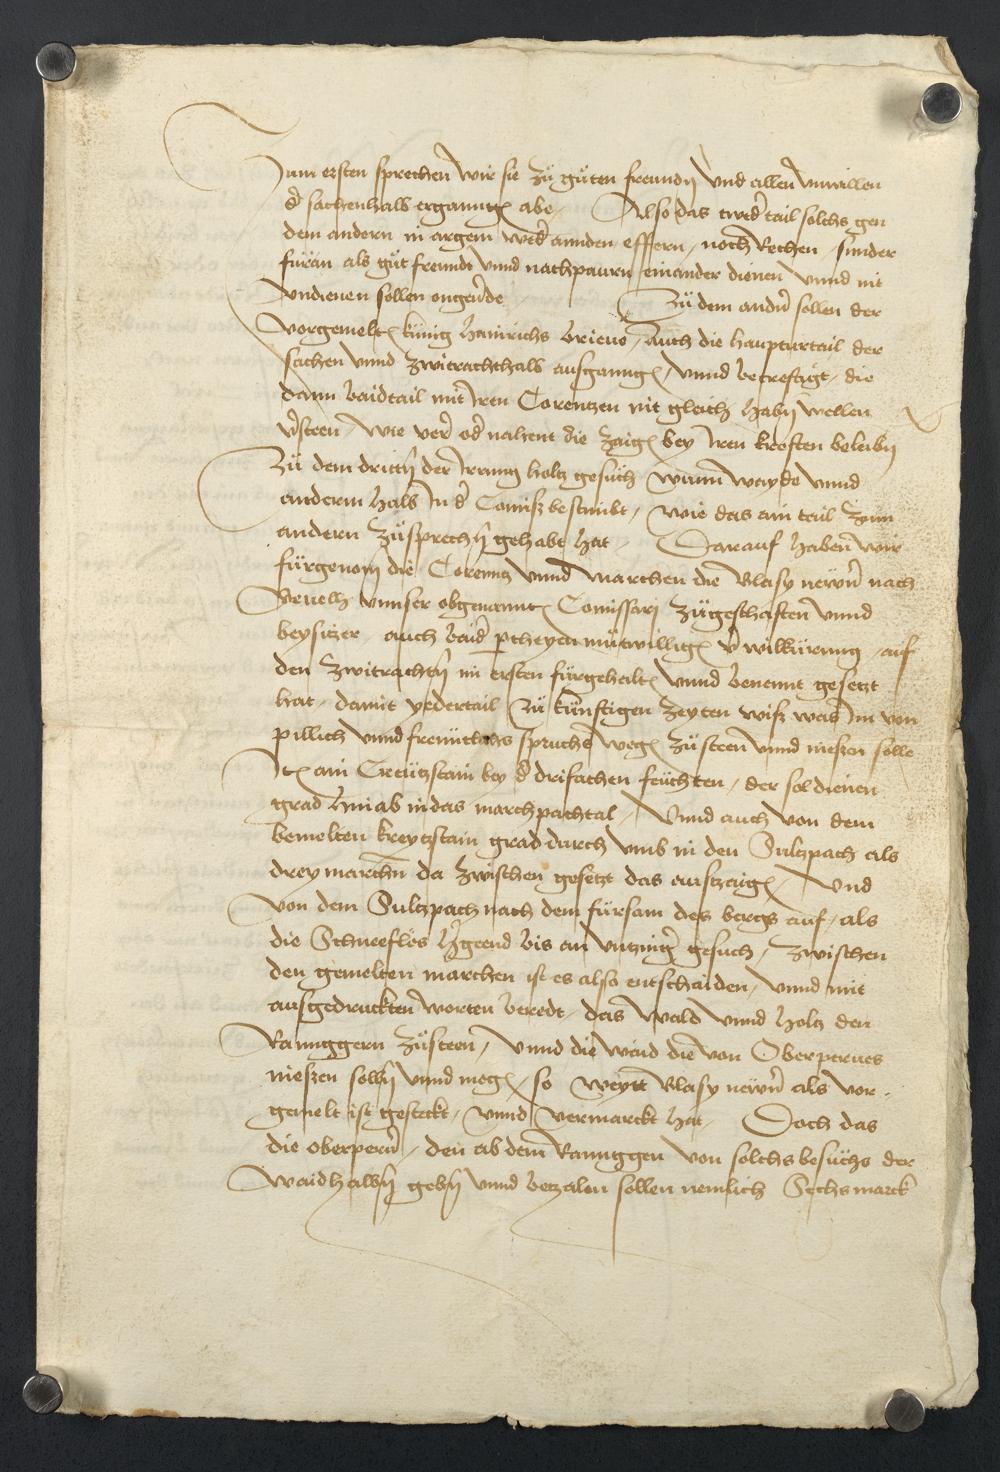 Zum ersten sprechen wir sie zů gůten freundn vnd allen vnwillen
d' sachenhalb erganngn abe, Also das twed' tail solchs gen
dem andern in argem wed' annden effern, noch Rechen, sunder
füran als gůt freundt vnnd nachpaurn einander dienen vnnd nit
vndienen sollen ongeu'de Zů dem andn' sollen der
vorgemeltn künig hainrichs brieue, Auch die haupturtail der
sachen vnnd zwitrachthalb ausganngn, vnnd becreftigt, die
dann baidtail mit Iren Corentzen nit gleich habn wellen
v'steen, wie ver' od' nahent die zaign bey Iren kreften beleibn
Zů dem drittn der Irrung holtz gesůch wunn wayde vnnd
anderm halb In d' Comiss bestimbt, wie das ain tail zum
andern zůsprechn gehabt hat, Darauf haben wir
fürgenomn die Corentz vnnd marchen die Blasy new'n' nach
beuelh vnnser obgenanntn Comissari zůgeschafften vnnd
beysitzer, auch baid' ptheyen můtwillign v'wilkürung, auf
den zwitrachtn im ersten fürgehaltn vnnd benennt gesetzt
hat, damit yedertail zů künftigen zeyten wiss was Im von
pillich vnnd freuntlichs spruchs wegn zů steen vnnd niessen solle
Itn ain Creützstain bey d' drifachen feüchten, der sol dienen
grad hinab in das marchpachtal, Vnnd auch von dem
bemelten kreytzstain grad durch vmb in den Sultzpach als
drey marchn da zwischen gesetzt das auszaign, Vnd
von dem Sultzpach nach dem fürsam des bergs auf, als
die Schneeflos h'geend bis an gesuch, zwischen
den gemelten marchen ist es also entschaiden, vnnd mit
ausgedruckten worten beredt, das wald vnnd holtz den
Ranggern zůsteen, vnnd die waid die von Oberperues
niessen solln vnnd megn, so weytt Blasy new'n' als vor-
gemelt ist gesteckt, vnnd vermarckt hat, Doch das
die oberpern', den ab dem Ranggen von solchs besůchs der
waidhalbn gebn vnnd betzalen sollen nemlich Sechs marck